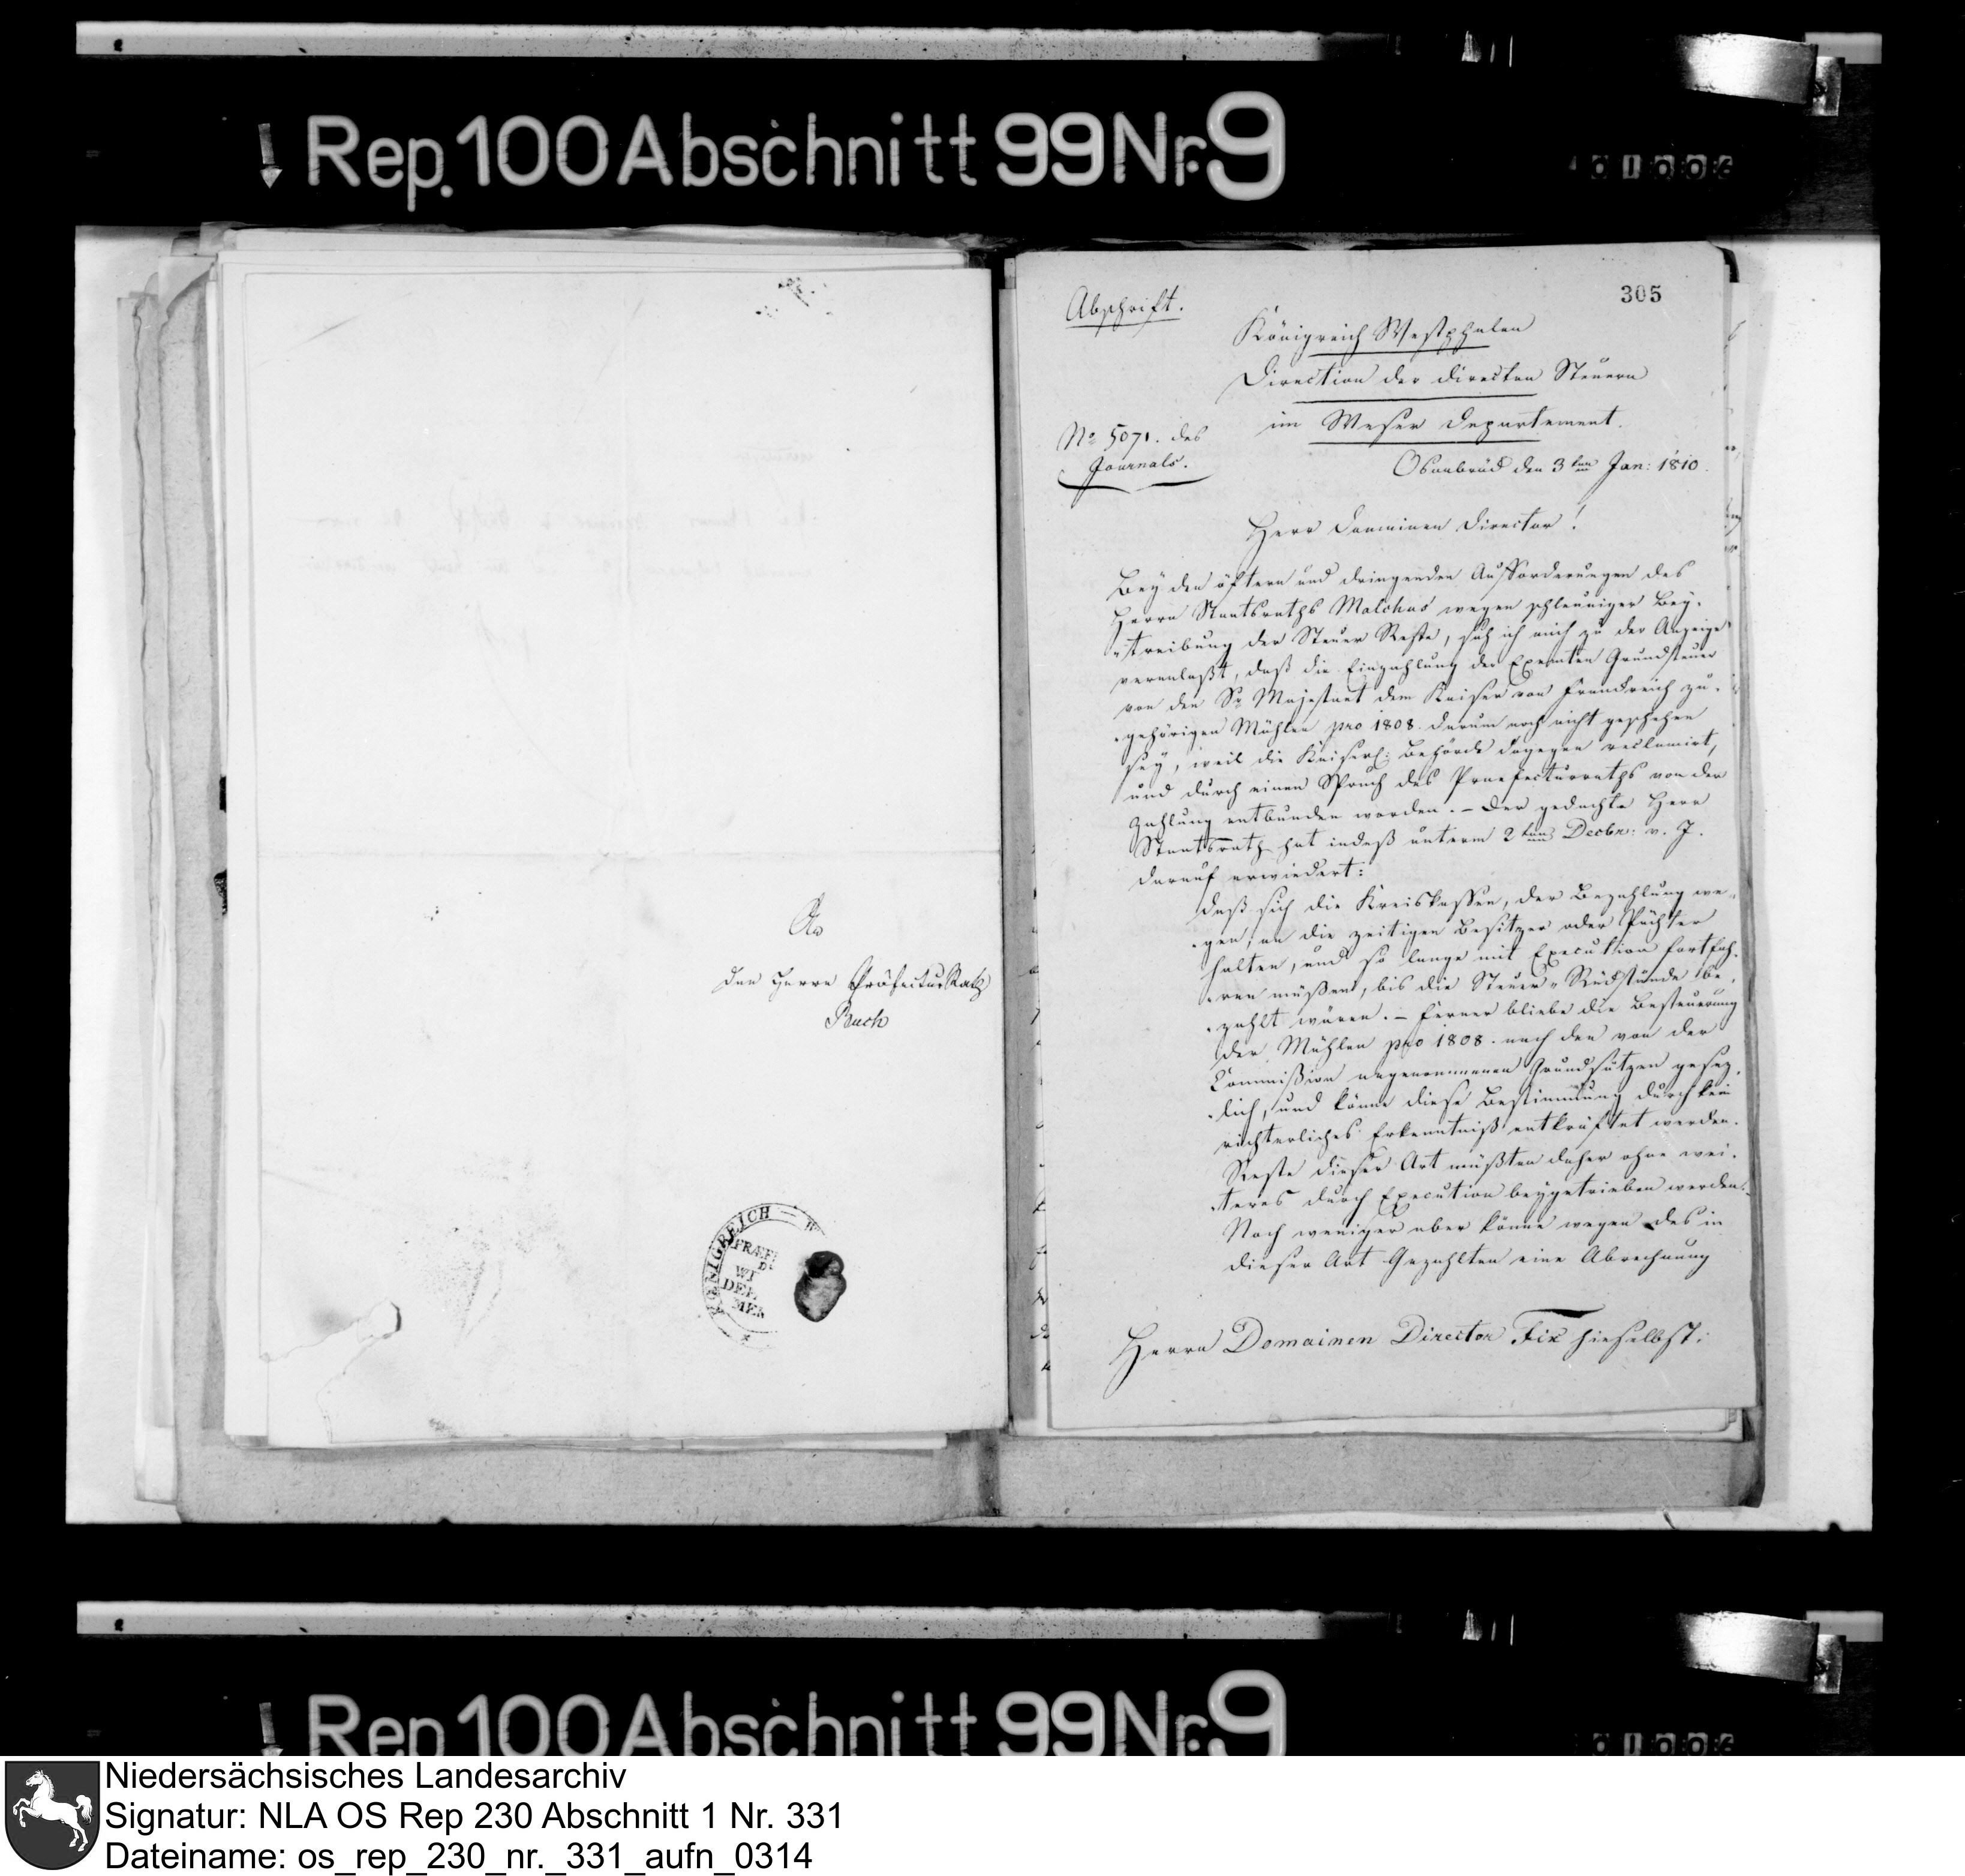 Rep. 100 Abschnitt 99 Nr. 9
An
den Herrn Präfectur Rath
Buch
KÖNIGREICH — W
PRÆF
DEP
305
Abschrift.
Königreich Westphalen
Direction der directen Steuern
im Weser Departement.
No 5071. des
Journals.
Osnabrück den 3ten Jan: 1810.
Herr Domainen Director!
Bey den öftern und dringenden Aufforderungen des
Herrn Staatsraths Malchus wegen schleuniger Bey-
"treibung der Steuer Reste, sah ich mich zu der Anzeige
veranlaßt, daß die Einzahlung der Exemten Grundsteuer
von den Sr Majestaet dem Kaiser von Frankreich zu-
-gehörigen Mühlen pro 1808. darum noch nicht geschehen
sey, weil die Kaiserl: Behörde dagegen reclamirt,
und durch einen Spruch des Praefecturraths von der
Zahlung entbunden worden. - Der gedachte Herr
Staatsrath hat indeß unterm 2ten Decbr: v. J.
darauf erwiedert:
daß sich die Kreiskassen, der Bezahlung we-
-gen, an die zeitigen Besitzer oder Pächter
halten, und so lange mit Execution fortfah-
-ren müßen, bis die Steuer-Rückstände be-
-zahlt wären. - Ferner bliebe die Besteuerung
der Mühlen pro 1808. nach den von der
Commißion angenommenen Grundsätzen gesez-
-lich, und könne diese Bestimmung durch kein
richterliches Erkenntniß entkräftet werden.
Reste dieser Art müßten daher ohne wei-
-teres durch Execution beygetrieben werden.
Noch weniger aber könne wegen des in
dieser Art Gezahlten eine Abrechnung
Herrn Domainen Director Fix hieselbst.
Rep 100 Abschnitt 99 Nr. 9
Niedersächsisches Landesarchiv
Signatur: NLA OS Rep 230 Abschnitt 1 Nr. 331
Dateiname: os_rep_230_nr._331_aufn_0314